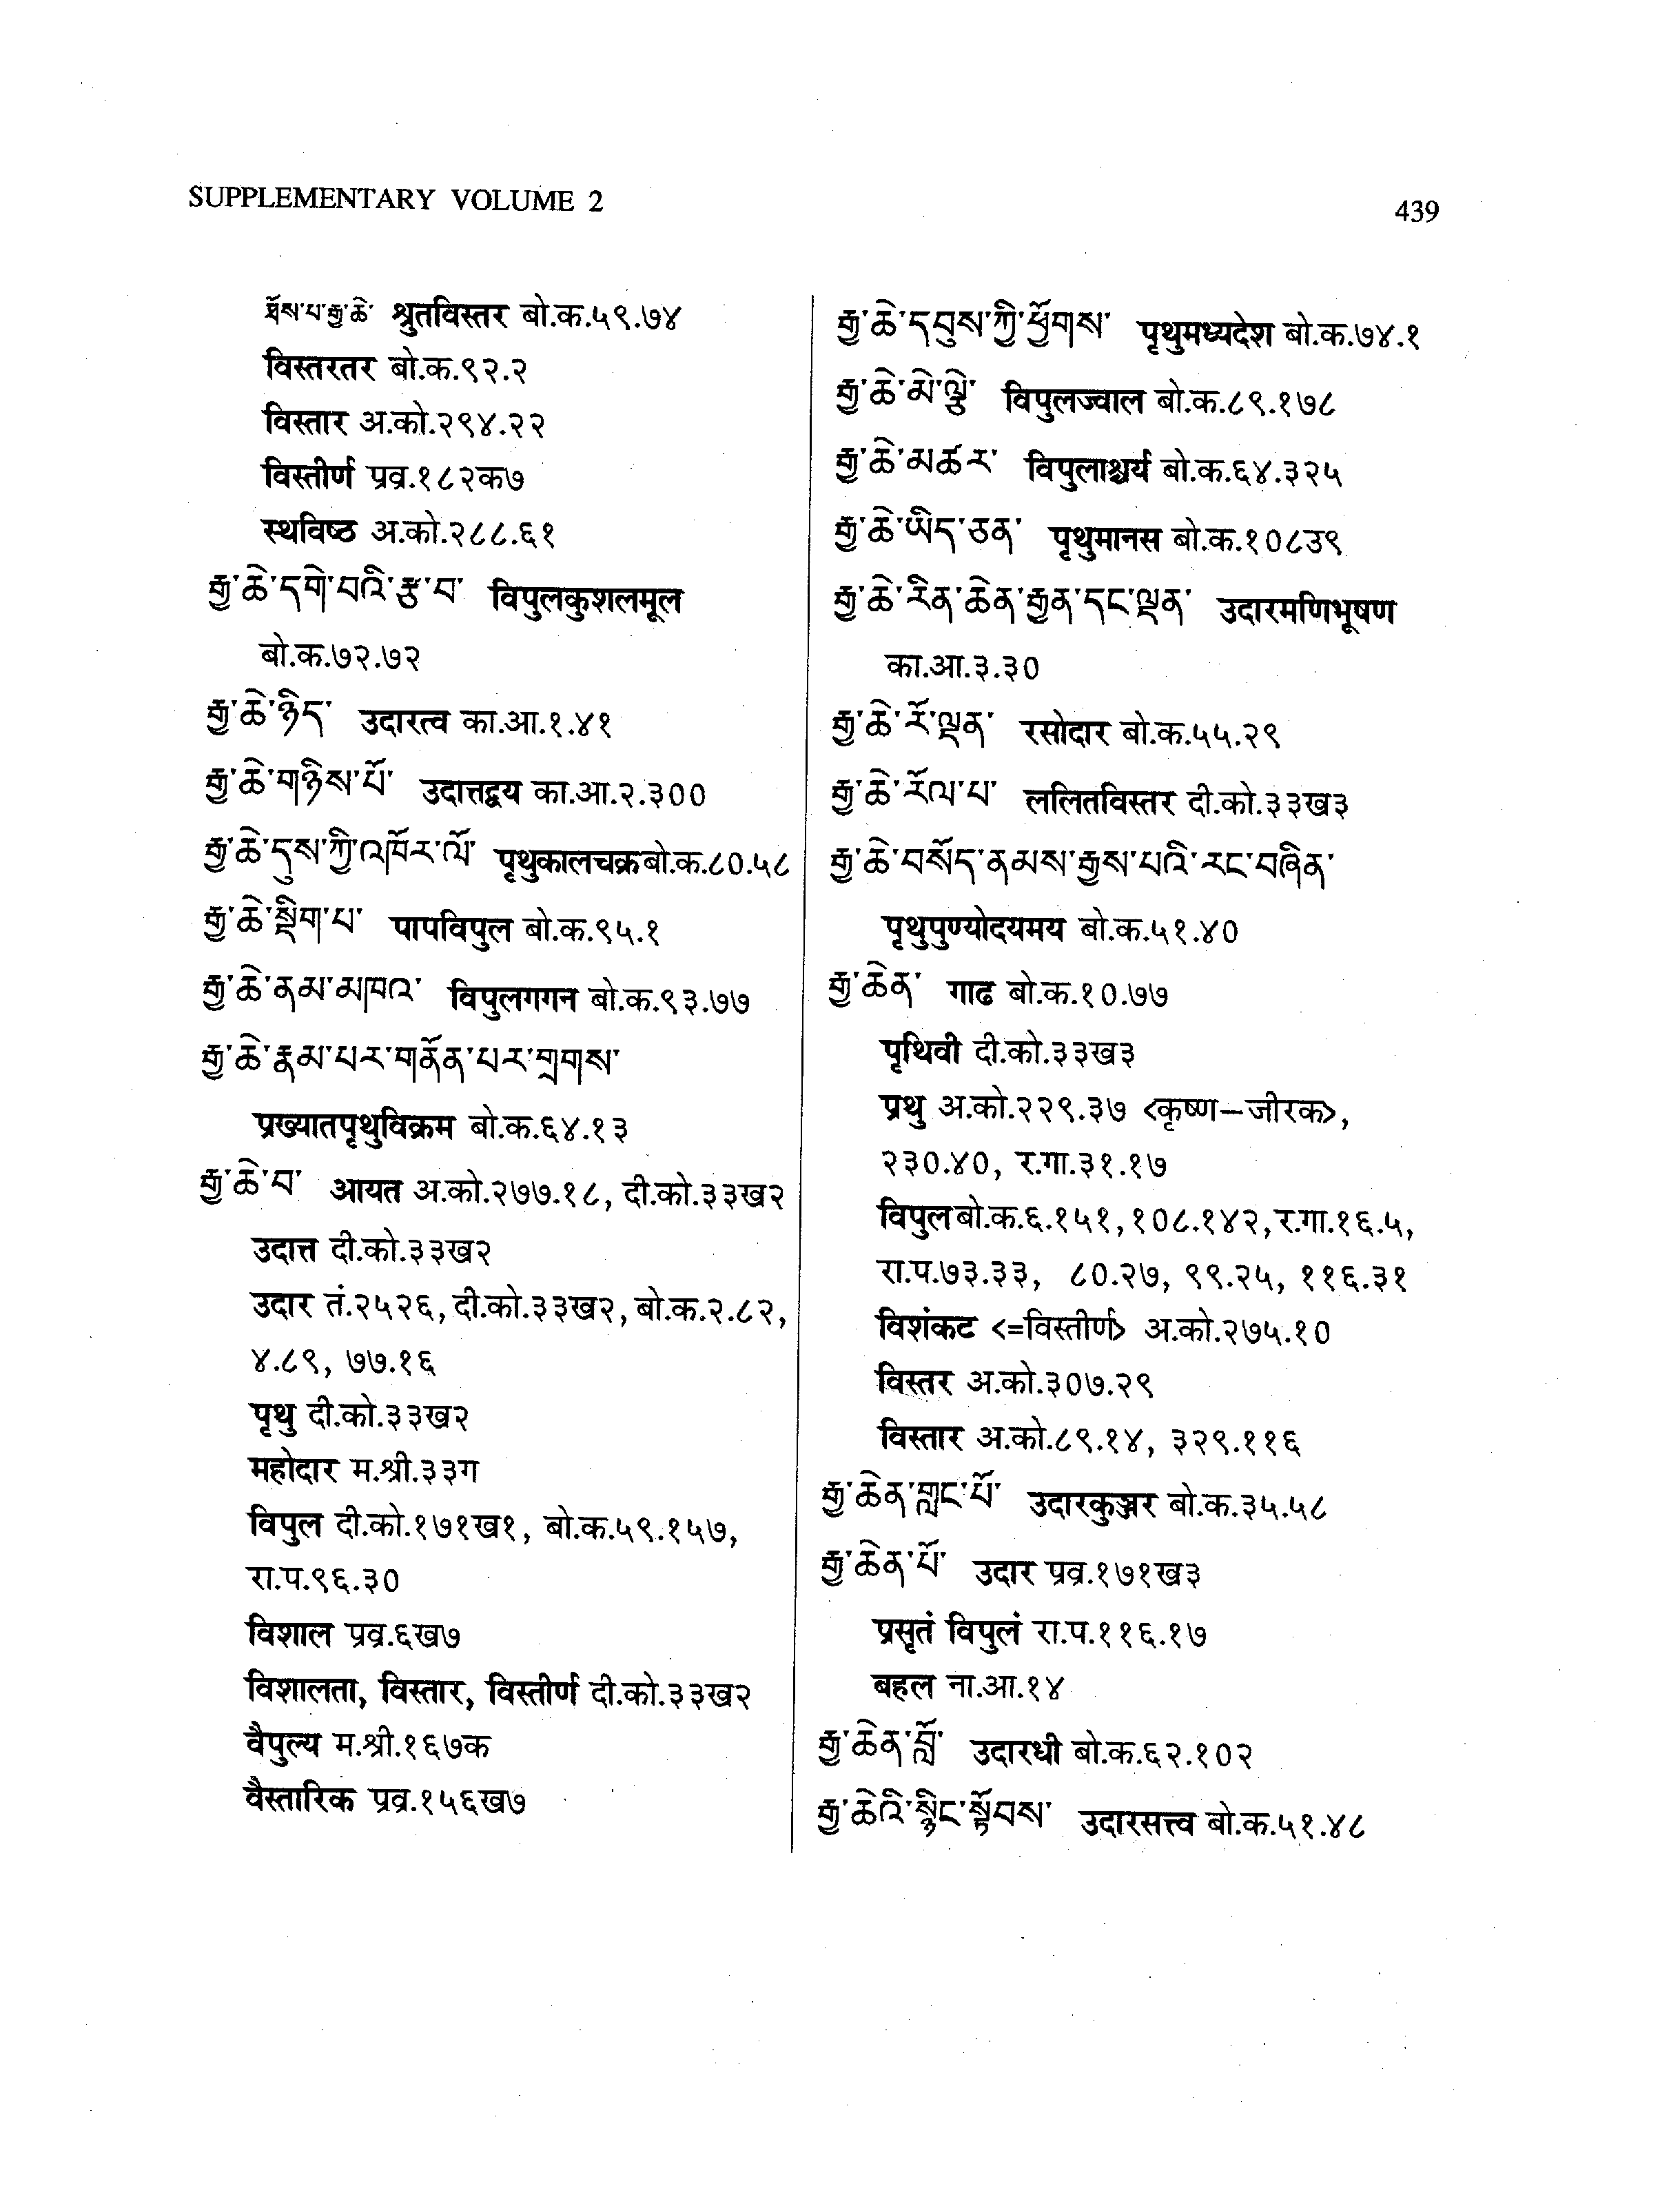 SUPPLEMENTARY VOLUME 2
439
ཐོས་པ་རྒྱ་ཆེ་ श्रुतविस्तर बो.क.५९.७४
विस्तरतर बो.क.९२.२
विस्तार अ.को.२९४.२२
विस्तीर्ण प्रव्र.१८२क७
स्थविष्ठ अ.को.२८८.६१
རྒྱ་ཆེ་དགེ་བའི་རྩ་བ་ विपुलकुशलमूल
बो.क.७२.७२
རྒྱ་ཆེ་ཉིད་ उदारत्व का.आ.१.४१
རྒྱ་ཆེ་གཉིས་པོ་ उदात्तद्वय का.आ.२.३००
རྒྱ་ཆེ་དུས་ཀྱི་འཁོར་ལོ་ पृथुकालचक्र बो.क.८०.५८
རྒྱ་ཆེ་སྡིག་པ་ पापविपुल बो.क.९५.१
རྒྱ་ཆེ་ནམ་མཁའ་ विपुलगगन बो.क.९३.७७
རྒྱ་ཆེ་རྣམ་པར་གནོན་པར་གྲགས་
प्रख्यातपृथुविक्रम बो.क.६४.१३
རྒྱ་ཆེ་བ་ आयत अ.को.२७७.१८, दी.को.३३ख२
उदात्त दी.को.३३ख२
उदार तं.२५२६, दी.को.३३ख२, बो.क.२.८२,
४.८९, ७७.१६
पृथु दी.को.३३ख२
महोदार म.श्री.३३ग
विपुल दी.को.१७१ख१, बो.क.५९.१५७,
रा.प.९६.३०
विशाल प्रव्र.६ख७
विशालता, विस्तार, विस्तीर्ण दी.को.३३ख२
वैपुल्य म.श्री.१६७क
वैस्तारिक प्रव्र.१५६ख७
རྒྱ་ཆེ་དབུས་ཀྱི་ཕྱོགས་ पृथुमध्यदेश बो.क.७४.१
རྒྱ་ཆེ་མེ་ལྕེ་ विपुलज्वाल बो.क.८९.१७८
རྒྱ་ཆེ་མཚར་ विपुलाश्चर्य बो.क.६४.३२५
རྒྱ་ཆེ་ཡིད་ཅན་ पृथुमानस बो.क.१०८३९
རྒྱ་ཆེ་རིན་ཆེན་རྒྱན་དང་ལྡན་ उदारमणिभूषण
का.आ.३.३०
རྒྱ་ཆེ་རོ་ལྡན་ रसोदार बो.क.५५.२९
རྒྱ་ཆེ་རོལ་པ་ ललितविस्तर दी.को.३३ख३
རྒྱ་ཆེ་བསོད་ནམས་རྒྱས་པའི་རང་བཞིན་
पृथुपुण्योदयमय बो.क.५१.४०
རྒྱ་ཆེན་ गाढ बो.क.१०.७७
पृथिवी दी.को.३३ख३
प्रथु अ.को.२२९.३७ <कृष्ण–जीरक>,
२३०.४०, र.गा.३१.१७
विपुल बो.क.६.१५१, १०८.१४२, र.गा.१६.५,
रा.प.७३.३३, ८०.२७, ९९.२५, ११६.३१
विशंकट <=विस्तीर्ण> अ.को.२७५.१०
विस्तर अ.को.३०७.२९
विस्तार अ.को.८९.१४, ३२९.११६
རྒྱ་ཆེན་གླང་པོ་ उदारकुञ्जर बो.क.३५.५८
རྒྱ་ཆེན་པོ་ उदार प्रव्र.१७१ख३
प्रसृतं विपुलं रा.प.११६.१७
बहल ना.आ.१४
རྒྱ་ཆེན་བློ་ उदारधी बो.क.६२.१०२
རྒྱ་ཆེའི་སྙིང་སྟོབས་ उदारसत्त्व बो.क.५१.४८